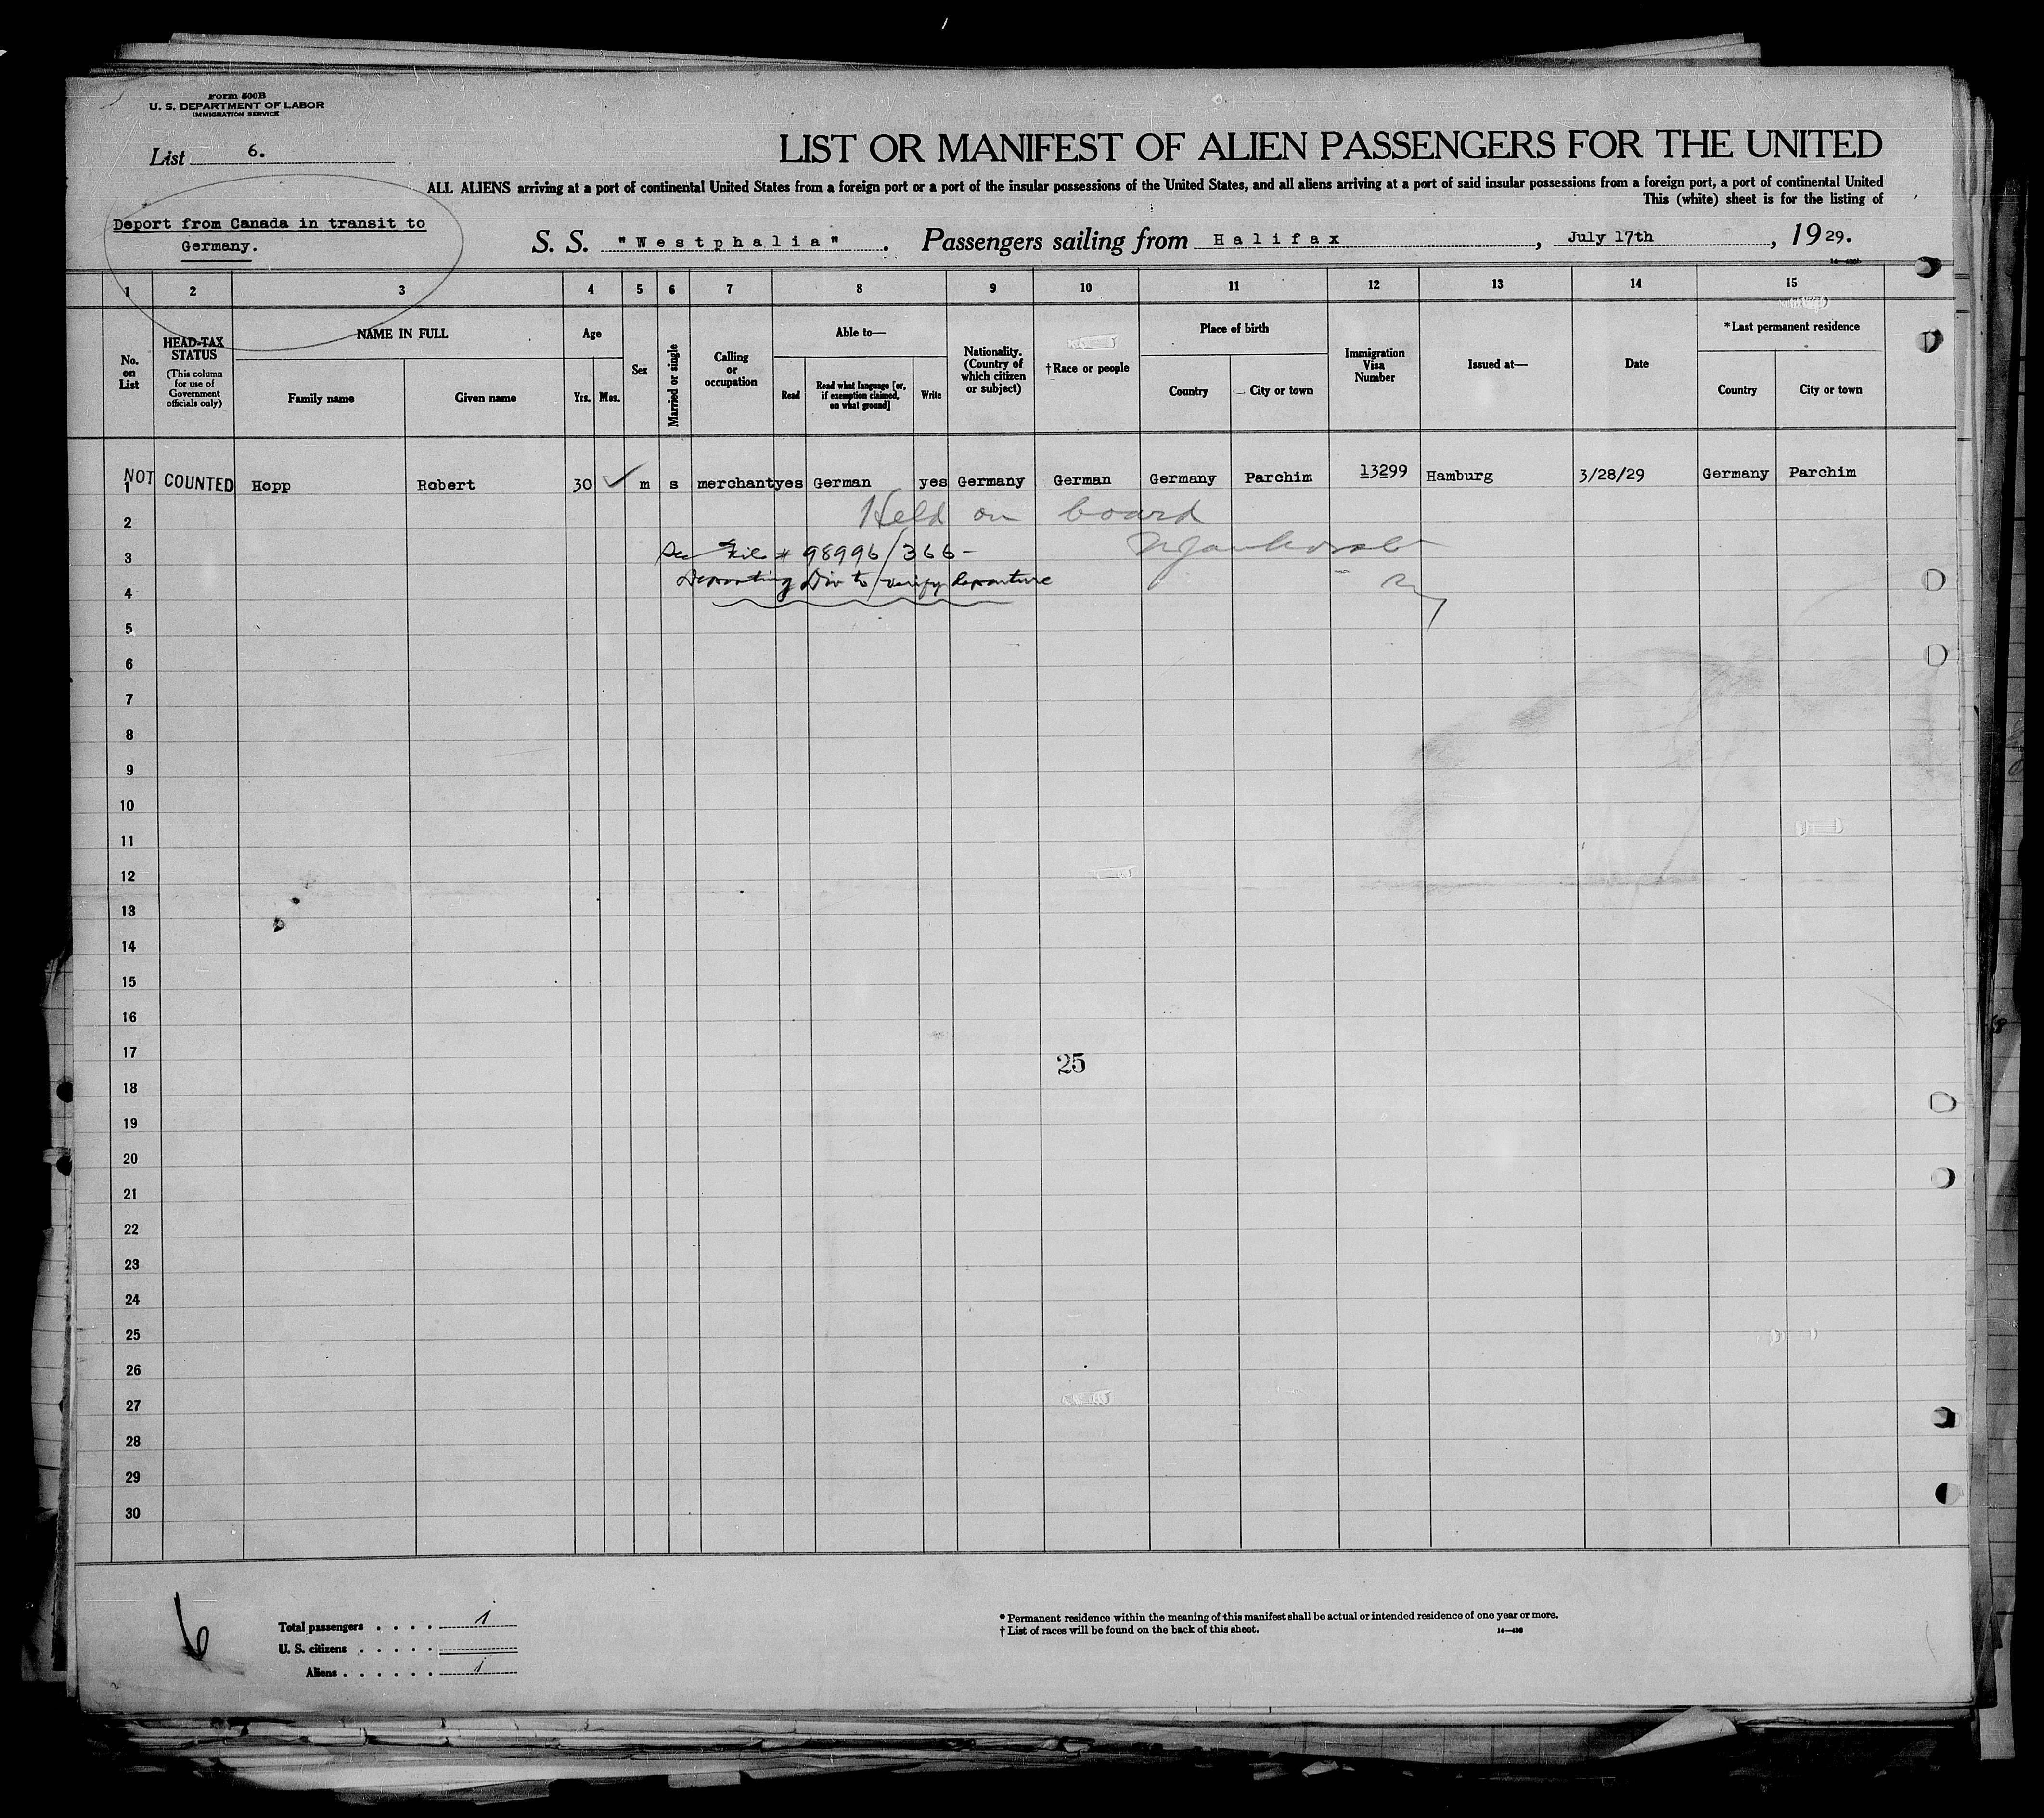 Form 500B
U. S. DEPARTMENT OF LABOR
IMMIGRATION SERVICE
List 6.
LIST OR MANIFEST OF ALIEN PASSENGERS FOR THE UNITED
ALL ALIENS arriving at a port of continental United States from a foreign port or a port of the insular possessions of the United States, and all aliens arriving at a port of said insular possessions from a foreign port, a port of continental United
This (white) sheet is for the listing of
Deport from Canada in transit to
Germany.
S. S. "Westphalia". Passengers sailing from Halifax, July 17th, 1929.
1 2 3 4 5 6 7 8 9 10 11 12 13 14 15
No. on List
HEAD-TAX STATUS
(This column for use of Government officials only)
NAME IN FULL
Family name
Given name
Age
Yrs.
Mos.
Sex
Married or single
Calling or occupation
Able to—
Read
Read what language [or, if exemption claimed, on what ground]
Write
Nationality. (Country of which citizen or subject)
†Race or people
Place of birth
Country
City or town
Immigration Visa Number
Issued at—
Date
*Last permanent residence
Country
City or town
NOT COUNTED
1 Hopp Robert 30 m s merchant yes German yes Germany German Germany Parchim 13299 Hamburg 3/28/29 Germany Parchim
Held on board
2
See File # 98996/366-
3
Deporting Div to verify departure
4
5
6
7
8
9
10
11
12
13
14
15
16
17
25
18
19
20
21
22
23
24
25
26
27
28
29
30
6
Total passengers . . . . 1
U. S. citizens . . . . .
Aliens . . . . . . 1
* Permanent residence within the meaning of this manifest shall be actual or intended residence of one year or more.
† List of races will be found on the back of this sheet.